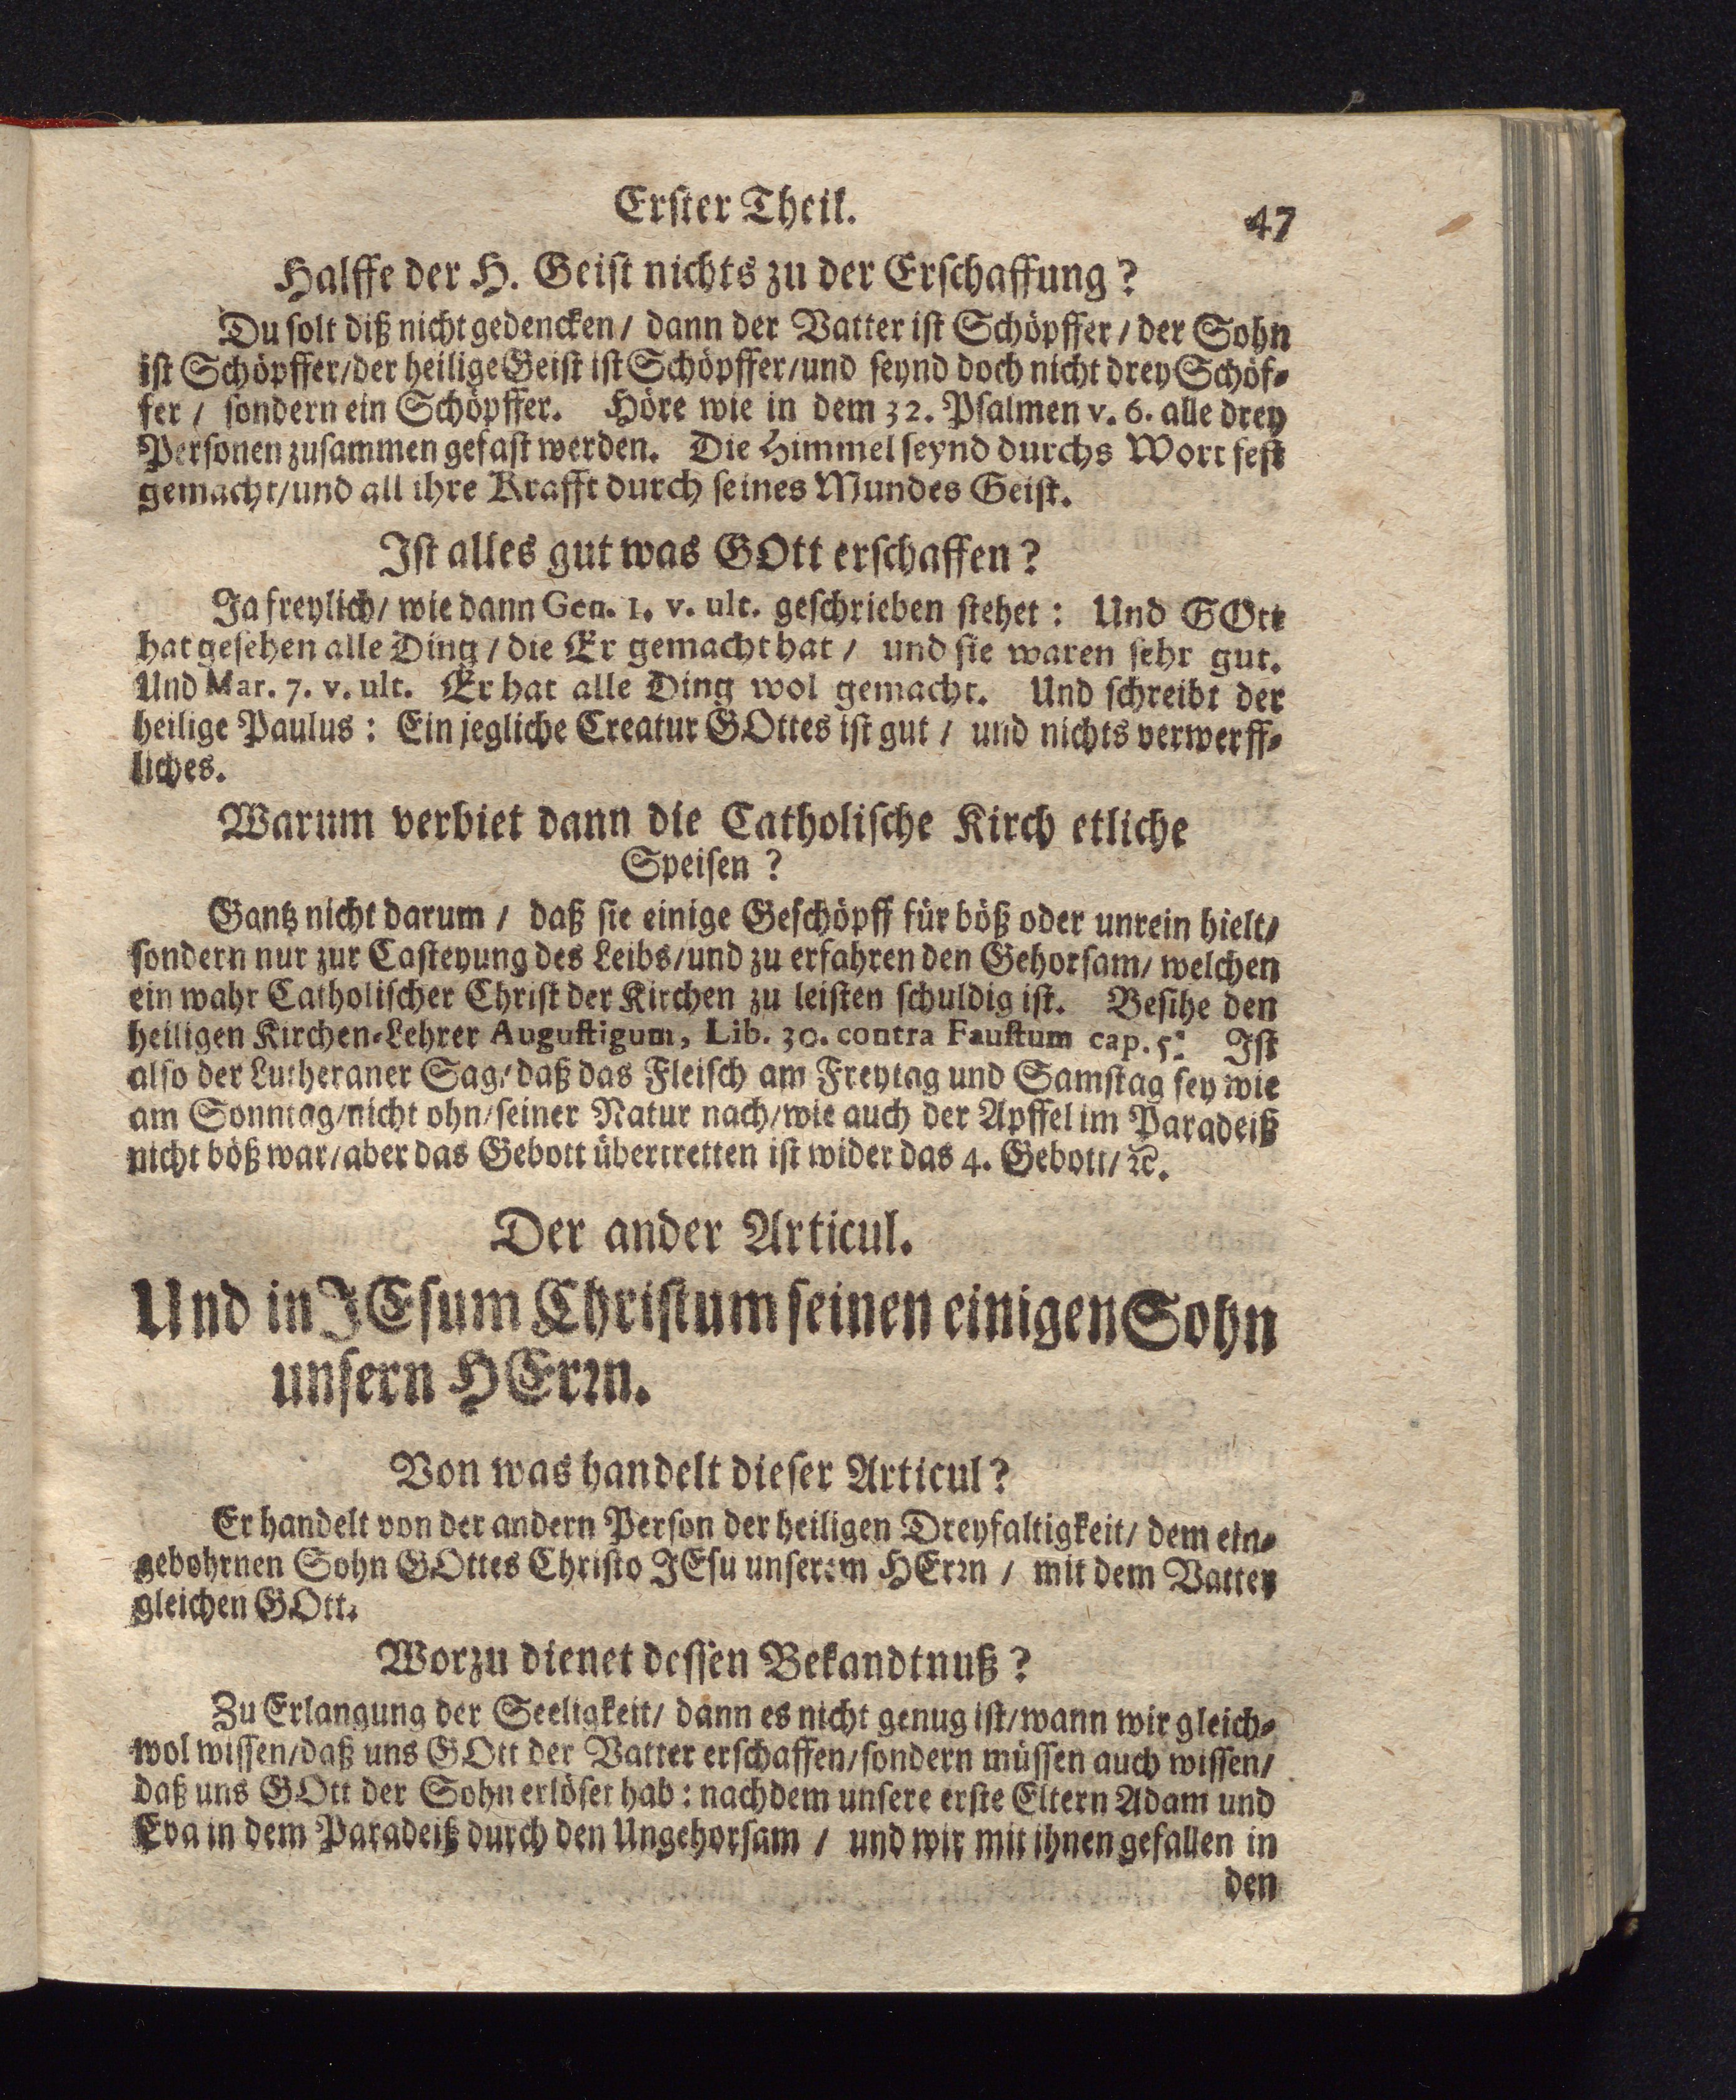 Erster Theil.
47
Halffe der H. Geist nichts zu der Erschaffung?
Du solt diß nicht gedencken / dann der Vatter ist Schöpffer / der Sohn
ist Schöpffer / der heilige Geist ist Schöpffer / und seynd doch nicht drey Schöf-
fer / sondern ein Schöpffer. Höre wie in dem 32. Psalmen v. 6. alle drey
Personen zusammen gefast werden. Die Himmel seynd durchs Wort fest
gemacht / und all ihre Krafft durch seines Mundes Geist.
Ist alles gut was GOtt erschaffen?
Ja freylich / wie dann Gen. 1. v. ult. geschrieben stehet: Und GOtt
hat gesehen alle Ding / die Er gemacht hat / und sie waren sehr gut.
Und Mar. 7. v. ult. Er hat alle Ding wol gemacht. Und schreibt der
heilige Paulus: Ein jegliche Creatur GOttes ist gut / und nichts verwerff-
liches.
Warum verbiet dann die Catholische Kirch etliche
Speisen?
Gantz nicht darum / daß sie einige Geschöpff für böß oder unrein hielt /
sondern nur zur Casteyung des Leibs / und zu erfahren den Gehorsam / welchen
ein wahr Catholischer Christ der Kirchen zu leisten schuldig ist. Besihe den
heiligen Kirchen-Lehrer Augustigum, Lib. 30. contra Faustum cap. 5. Ist
also der Lutheraner Sag / daß das Fleisch am Freytag und Samstag sey wie
am Sonntag / nicht ohn / seiner Natur nach / wie auch der Apffel im Paradeiß
nicht böß war / aber das Gebott übertretten ist wider das 4. Gebott / ꝛc.
Der ander Articul.
Und in JEsum Christum seinen einigen Sohn
unsern HErꝛn.
Von was handelt dieser Articul?
Er handelt von der andern Person der heiligen Dreyfaltigkeit / dem ein-
gebohrnen Sohn GOttes Christo JEsu unserem HErꝛn / mit dem Vatter
gleichen GOtt.
Worzu dienet dessen Bekandtnuß?
Zu Erlangung der Seeligkeit / dann es nicht genug ist / wann wir gleich-
wol wissen / daß uns GOtt der Vatter erschaffen / sondern müssen auch wissen /
daß uns GOtt der Sohn erlöset hab: nachdem unsere erste Eltern Adam und
Eva in dem Paradeiß durch den Ungehorsam / und wir mit ihnen gefallen in
den